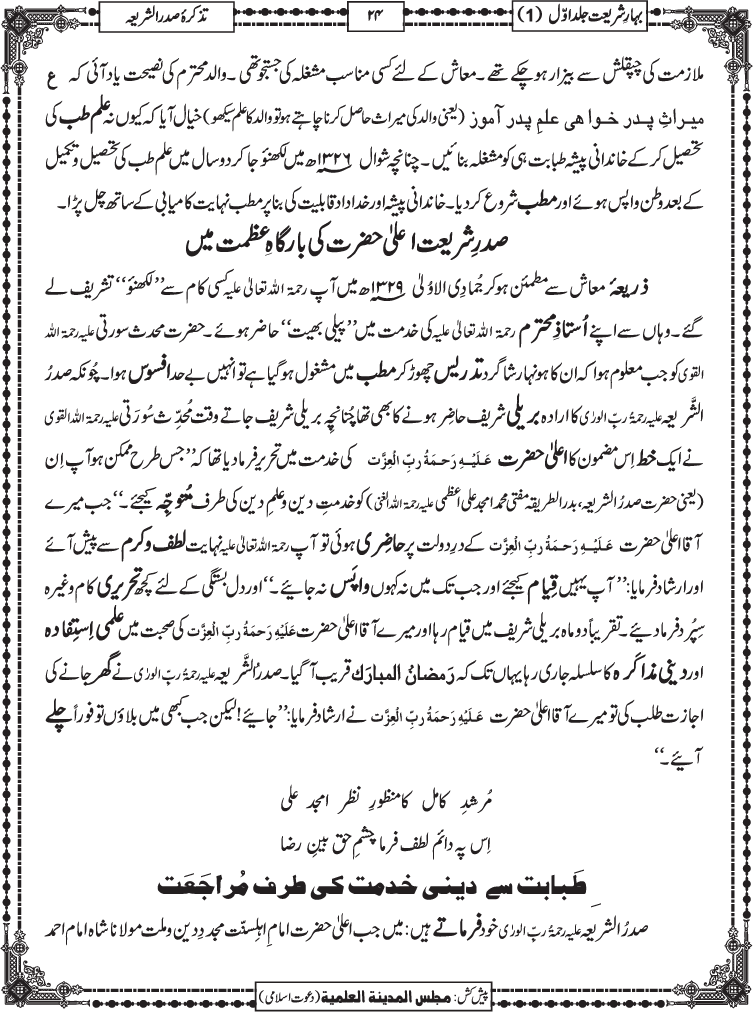 بہارِ شریعت جلد اوّل (1)
۲۴
تذکرۂ صدر الشریعہ
ملازمت کی چپقلش سے بیزار ہو چکے تھے۔ معاش کے لئے کسی مناسب مشغلہ کی جستجو تھی۔ والد محترم کی نصیحت یاد آئی کہ ع
میراثِ پدر خواهی علمِ پدر آموز (یعنی والد کی میراث حاصل کرنا چاہتے ہو تو والد کا علم سیکھو) خیال آیا کہ کیوں نہ علم طب کی
تحصیل کر کے خاندانی پیشہ طبابت ہی کو مشغلہ بنائیں۔ چنانچہ شوال ۱۳۲۶ھ میں لکھنؤ جا کر دو سال میں علم طب کی تحصیل و تکمیل
کے بعد وطن واپس ہوئے اور مطب شروع کر دیا۔ خاندانی پیشہ اور خداداد قابلیت کی بنا پر مطب نہایت کامیابی کے ساتھ چل پڑا۔
صدرِ شریعت اعلیٰ حضرت کی بارگاہِ عظمت میں
ذریعۂ معاش سے مطمئن ہو کر جُمادِی الاوْلٰی ۱۳۲۹ھ میں آپ رحمۃ اللہ تعالیٰ علیہ کسی کام سے ’’لکھنؤ‘‘ تشریف لے
گئے۔ وہاں سے اپنے اُستاذِ محترم رحمۃ اللہ تعالیٰ علیہ کی خدمت میں ’’پیلی بھیت‘‘ حاضر ہوئے۔ حضرت محدث سورتی علیہ رحمۃ اللہ
القوی کو جب معلوم ہوا کہ ان کا ہونہار شاگرد تدریس چھوڑ کر مطب میں مشغول ہو گیا ہے تو انہیں بے حد افسوس ہوا۔ چُونکہ صدرُ
الشَّریعہ علیہ رحمۃُ ربِّ الورٰی کا ارادہ بریلی شریف حاضِر ہونے کا بھی تھا چُنانچہ بریلی شریف جاتے وقت مُحدِّث سُورَتی علیہ رحمۃ اللہ القوی
نے ایک خط اِس مضمون کا اعلیٰ حضرت عَلَیْہِ رَحمَۃُ ربِّ الْعِزَّت کی خدمت میں تحریر فرما دیا تھا کہ ’’جس طرح ممکن ہو آپ اِن
(یعنی حضرت صدرُ الشریعہ، بدر الطریقہ مفتی محمد امجد علی اعظمی علیہ رحمۃ اللہ الغنی) کو خدمتِ دین و علمِ دین کی طرف مُتَوجِّہ کیجئے۔‘‘ جب میرے
آقا اعلیٰ حضرت عَلَیْہِ رَحمَۃُ ربِّ الْعِزَّت کے درِ دولت پر حاضِری ہوئی تو آپ رحمۃ اللہ تعالیٰ علیہ نہایت لطف و کرم سے پیش آئے
اور ارشاد فرمایا: ’’آپ یہیں قِیام کیجئے اور جب تک میں نہ کہوں واپَس نہ جائیے۔‘‘ اور دل بستگی کے لئے کچھ تحریری کام وغیرہ
سِپُرد فرما دیئے۔ تقریباً دو ماہ بریلی شریف میں قیام رہا اور میرے آقا اعلیٰ حضرت عَلَیْہِ رَحمَۃُ ربِّ الْعِزَّت کی صحبت میں علمی اِستِفادہ
اور دینی مذاکرہ کا سلسلہ جاری رہا یہاں تک کہ رَمضانُ المبارَک قریب آ گیا۔ صدرُ الشَّریعہ علیہ رحمۃُ ربِّ الورٰی نے گھر جانے کی
اجازت طلب کی تو میرے آقا اعلیٰ حضرت عَلَیْہِ رَحمَۃُ ربِّ الْعِزَّت نے ارشاد فرمایا: ’’جائیے! لیکن جب کبھی میں بلاؤں تو فوراً چلے
آئیے۔‘‘
مُرشدِ کامل کا منظورِ نظر امجد علی
اِس پہ دائم لطف فرما چشمِ حق بینِ رضا
طَبابت سے دینی خدمت کی طرف مُراجَعَت
صدرُ الشریعہ علیہ رحمۃُ ربِّ الورٰی خود فرماتے ہیں: میں جب اعلیٰ حضرت امامِ اہلسنّت مجدد دین و ملت مولانا شاہ امام احمد
پیش کش: مجلس المدینۃ العلمیۃ (دعوتِ اسلامی)